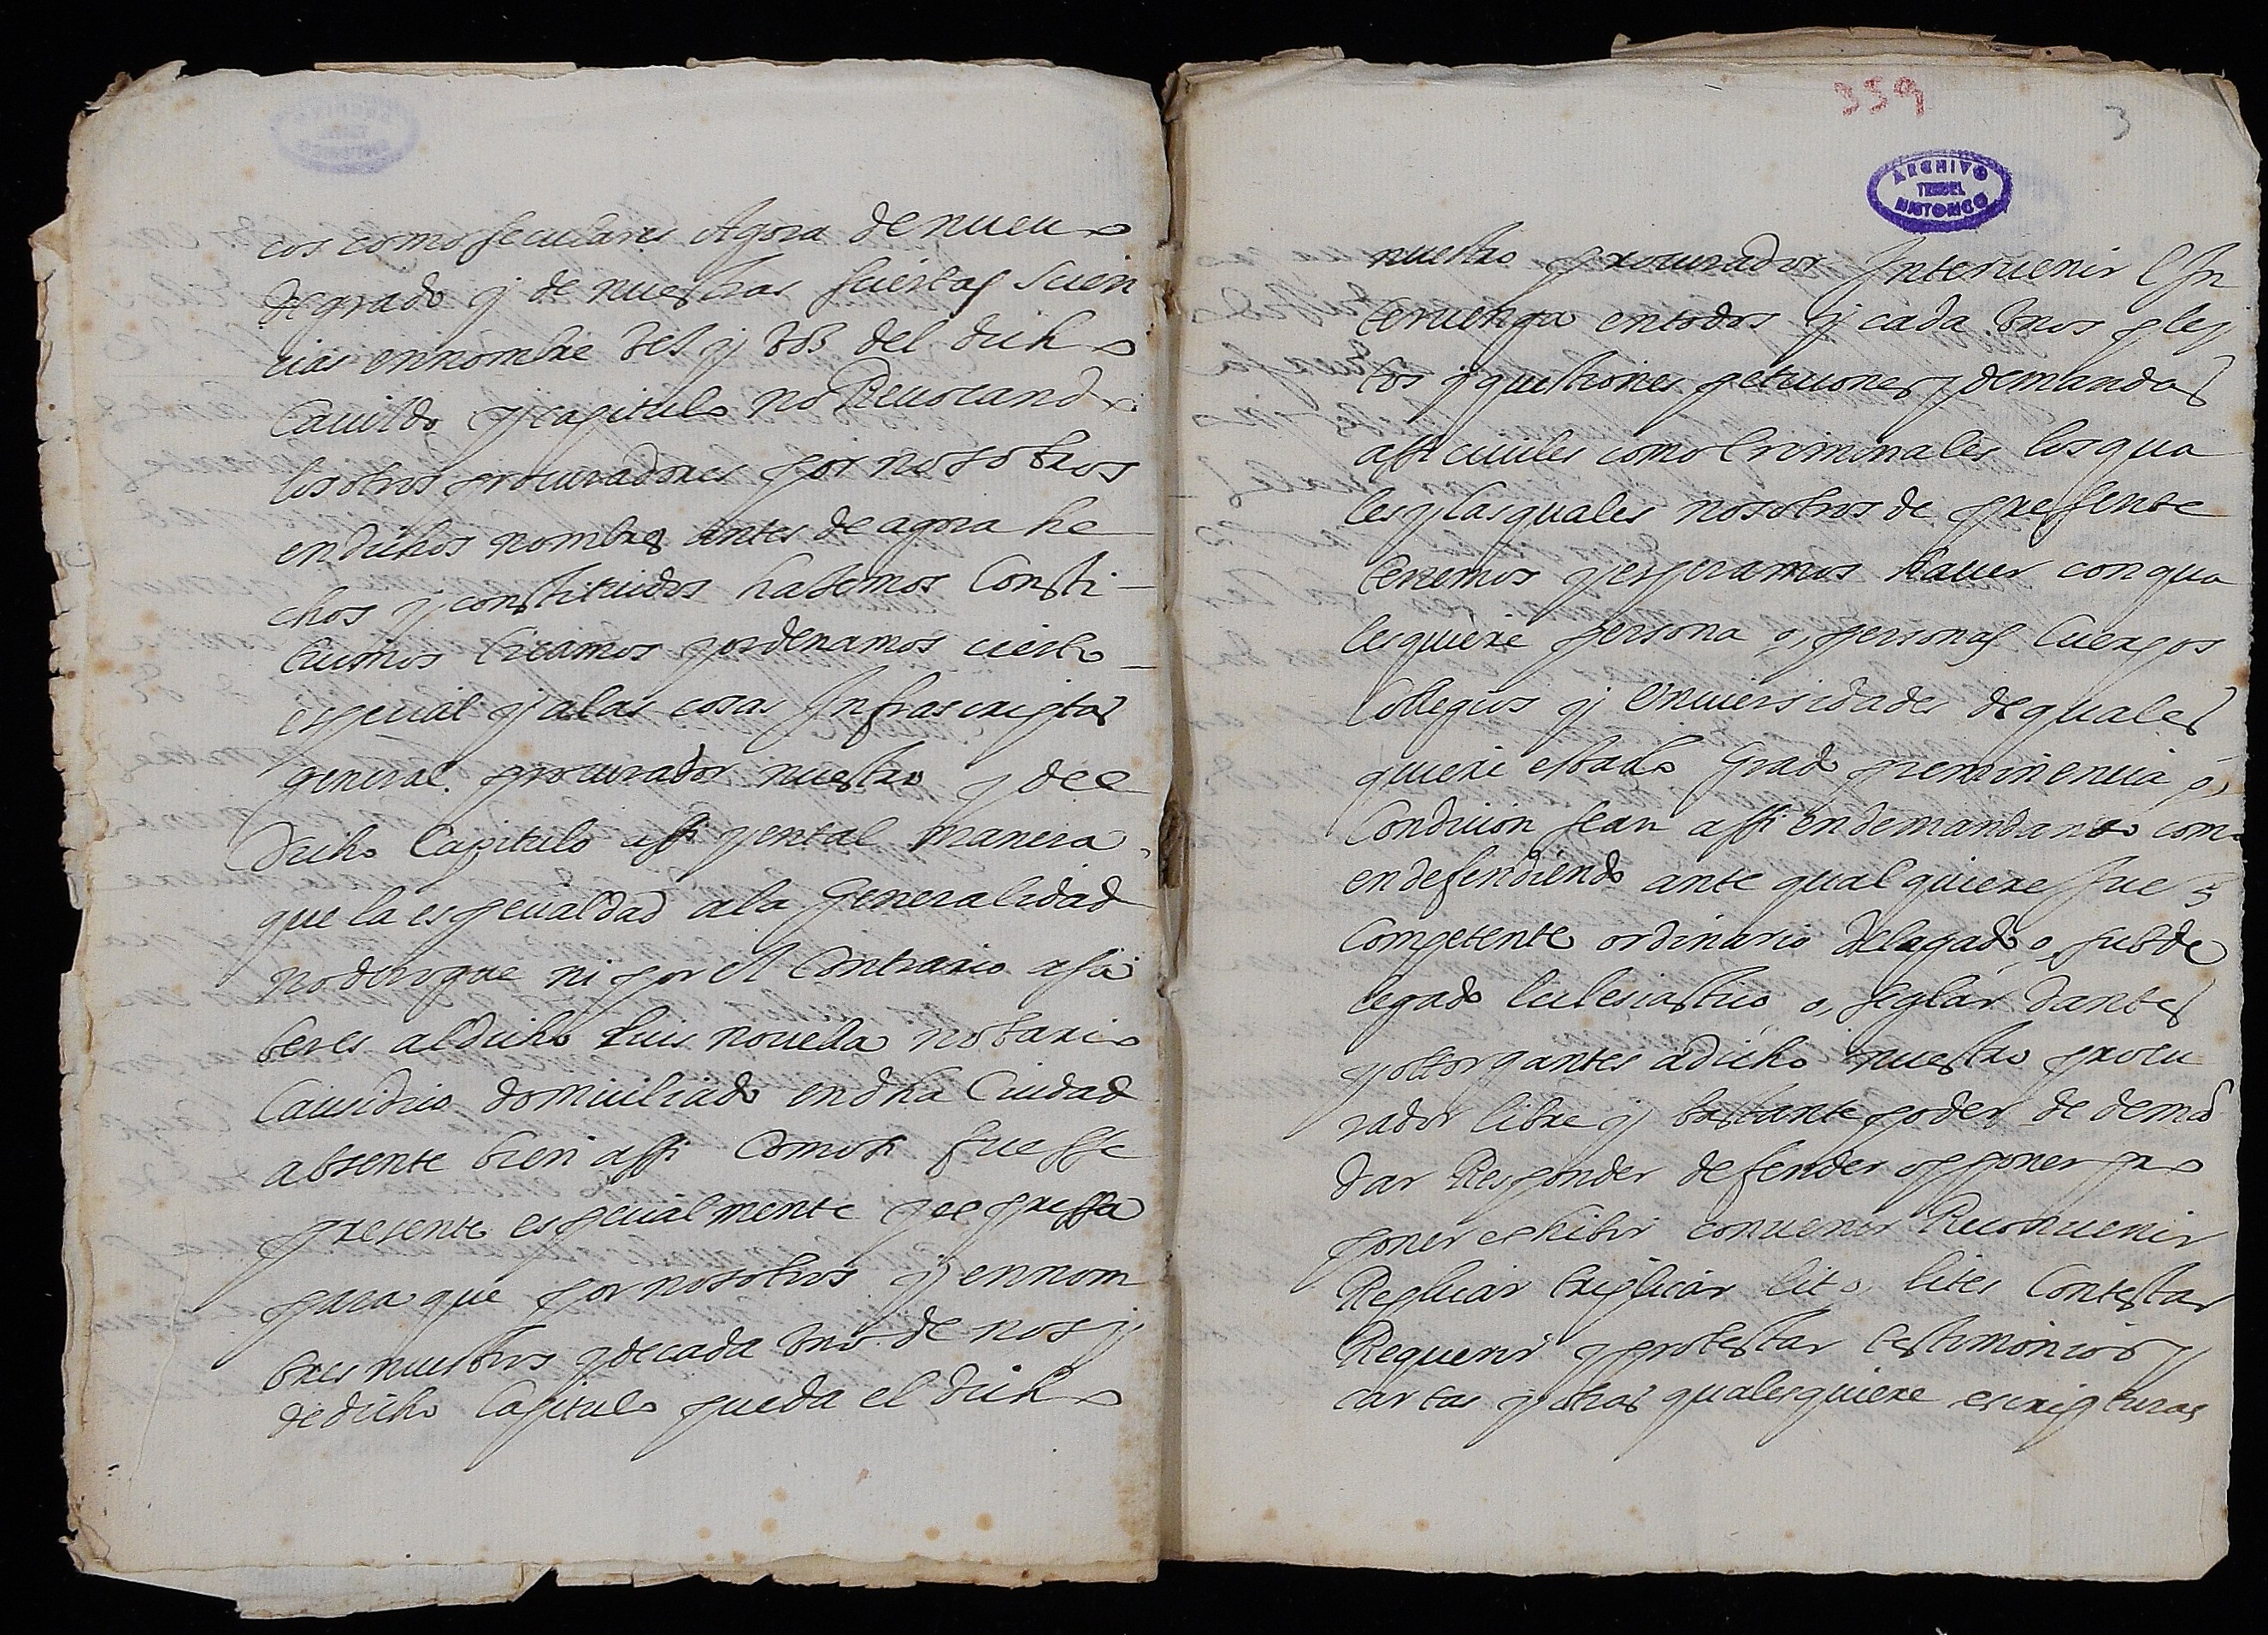 cos como seculares Agora de nueuo
de grado y de nuestras ciertas scien
cias en nombre del y del dicho
Cauildo y capitulo no Reuocando
los otros procuradores por nosotros
en dichos nombres antes de agora he
chos y constituidos hazemos Consti-
tuimos Creamos y ordenamos cierto
especial y a las cosas Infrascriptas
general procurador nuestro y del
Dicho Capitulo assi y en tal manera
que la especialdad a la Generalidad
no derogue ni por el Contrario assa
beres al dicho Luis noueda notario
Causidico domiciliado en dha Ciudad
absente bien assi Como si fuesse
presente especialmente y expressa
para que por nosotros y en nom
bres nuestros y de cada vno de nos y
de dicho Capitulo pueda el dicho
359
3
ARCHIVO
HISTORICO
nuestro procurador Interuenir E In
teruenga en todos y cada vnos pley
tos y questiones peticiones y demandas
assi ciuiles como Criminales los qua
les y las quales nosotros de presente
tenemos y esperamos hauer con qua
lesquiere persona o, personas Cuerpos
Collegios y Vniuersidades de quales
quiere estado Grado preminencia o,
Condicion sean assi en demandando como
en defendiendo ante qualquiere Juez
Competente ordinario delegado o, subde
legado Eclesiastico o, seglar Dantes
y ottorgantes a dicho nuestro procu
rador libre y bastante poder de demã
dar Responder defender opponer pro
poner exhibir conuenir Reconuenir
Replicar triplicar lit o, lites Contestar
Requerir y protestar testimonios y
cartas y otras qualesquiere escripturas